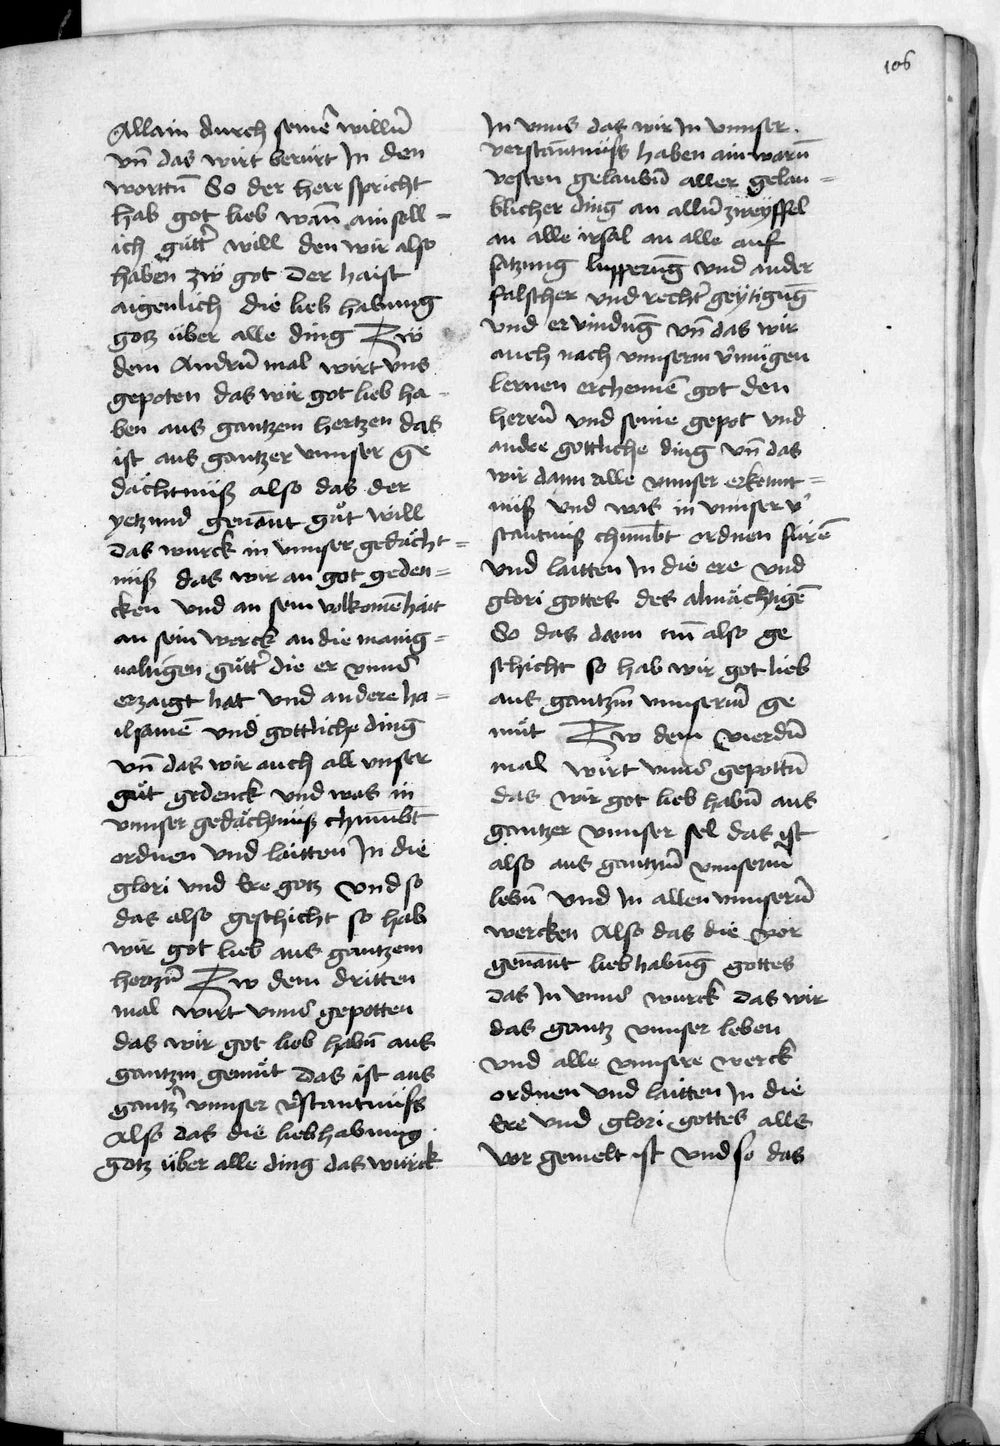 106
Allain durch seine͂ willn͂
vn͂ das wirt berürt In den
worttn͂ So der herr spricht
hab got lieb wan͂ ain soll=
ich gütt͛ will den wir also
haben zw̎ got Der haist
aigenlich die lieb habung
gotz über alle ding Zw̎
dem Andrn͂ mal wirt vns
gepoten das wir got lieb ha-
ben aus gantzem hertzen das
ist aus gantzer vnnser ge
dächtnüß also das der
yetzund gena͂nt gůt will
das wurck in vnnser gedächt=
nüß das wir an got geden=
cken vnd an sein volkome͂hait
an sein werck an die manig=
ualtigen gütt͛ die er vnns
erzaigt hat vnd andere ha=
ilsame͂ vnd gottliche ding
vn͂ das wir auch all vnser
gůt gedenck vnd was in
vnnser gedächtnuß chu͂mbt
ordnen vnd laitten In die
glori vnd Ere gotz vnd so
das also geschicht so hab
wir got lieb aus gantzem
hertzn͂ Zw dem dritten
mal wirt vnns gepotten
das wir got lieb habn͂ aus
gantzm gemüt Das ist aus
gantz͛ vnnser v͛stantnüss
Also das die liebhabung
gotz über alle ding das würck
In vnns das wir In vnnser
verstantnüss haben ain warn͂
vesten gelaubn͂ aller gelau=
blicher ding an alln͂ zweyffel
an alle irsal an alle auf
satzung lupperug͂ vnd ander
falscher vnd recht͛ geytigug͂
vnd ervindug͂ vn͂ das wir
auch nach vnnserm v͛mügen
lernen erchenne͂ got den
herrn͂ vnd seine gepot vnd
andre gottliche ding vn͂ das
wir dann alle vnnser erkennt=
nüß vnd was in vnnser v͛
stantnuß chu͂mbt ordnen füre͂
vnd laitten In die ere vnd
glori gottes des almächtige͂
So das dann nu͂ also ge
schicht so hab wir got lieb
aus gantzn͂ vnnserm͂ ge
müt Zw dem vierdn͂
mal wirt vnns gepottn͂
das wir got lieb habn͂ aus
gantzer vnnser sel das ist
also aus gantzm͂ vnnserm͂
lebn͂ vnd In allen vnnsern͂
wercken Also das die vor
gena͂nt liebhabug͂ gottes
das In vnns wurck das wir
das gantz vnnser leben
vnd alle vnnsere werck
ordnen vnd laitten In die
Ere vnd glori gottes alls
vor gemelt ist vnd so das